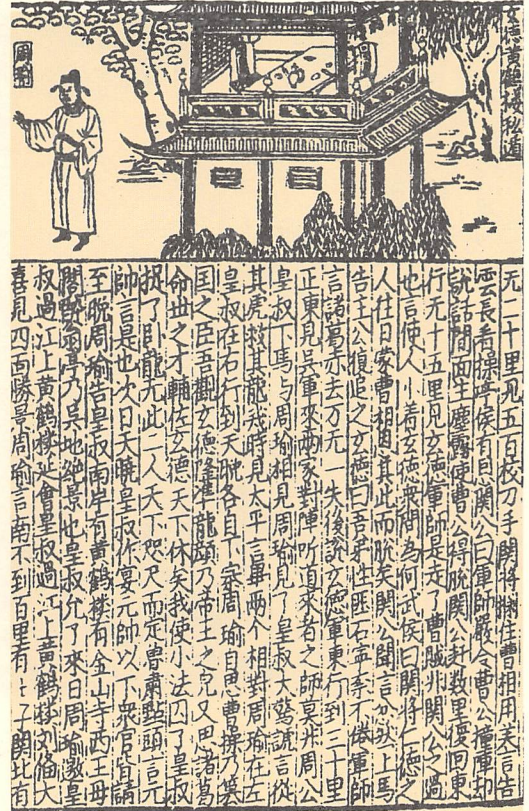 玄德黄鶴楼私遁
周瑜
无二十里見五百校刀手関将攔住曹相用美言告
雲長看操亭侯有恩関公曰軍師嚴令曹公撞陣却
說話間面生塵霧使曹公得脫関公赶数里復回東
行无十五里見玄德軍師是走了曹賊非関公之過
也言使人小着玄德衆問為何武侯曰関将仁德之
人往日蒙曹相恩其此而脫矣関公聞言忿然上馬
告主公復追之玄德曰吾弟性匪石寧奈不倦軍師
言諸葛亦去万无一失後說玄德軍東行到三十里
正東見吳軍來两家對陣听道來者之師莫非周公
皇叔下馬与周瑜相見周瑜見了皇叔大驚諕言從
其虎救其龍㦲時見太平言畢两个相對周瑜在左
皇叔在右行到天晚各自下寨周瑜自思曹操乃篡
囯之臣吾觀玄德隆準龍顔乃帝王之皃又思諸葛
命世之才輔佐玄德天下休矣我使小法囚了皇叔
捉了卧龍无此二人天下咫尺而定魯肅點頭言元
帥言是也次日天曉皇叔作宴元帥以下衆官皆請
至晚周瑜告皇叔南岸有黄鶴楼有金山寺西王母
閣醉翁亭乃吳地絶景也皇叔允了來日周瑜邀皇
叔過江上黄鶴楼筵會皇叔過江上黄鶴楼刘俻大
喜見四面勝景周瑜言南不到百里有〻子関北有